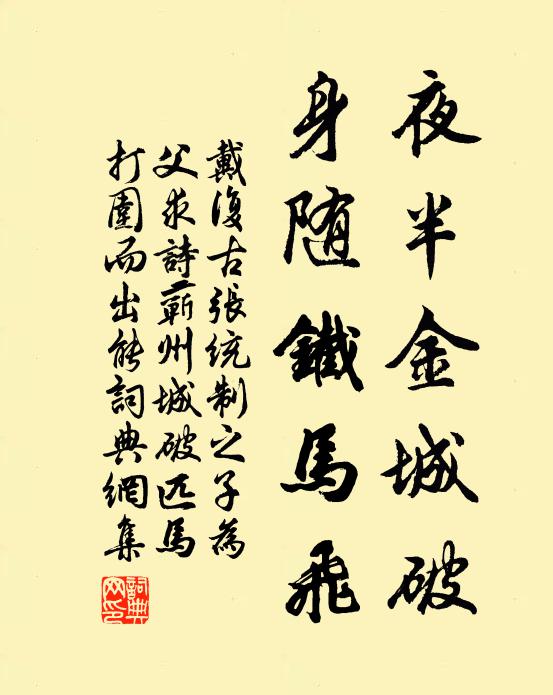 夜半金城破
身随鐵馬飛
戴復古張統制之子為
父求詩蘄州城破匹馬
打圍而出能詞典網集
詞典網印